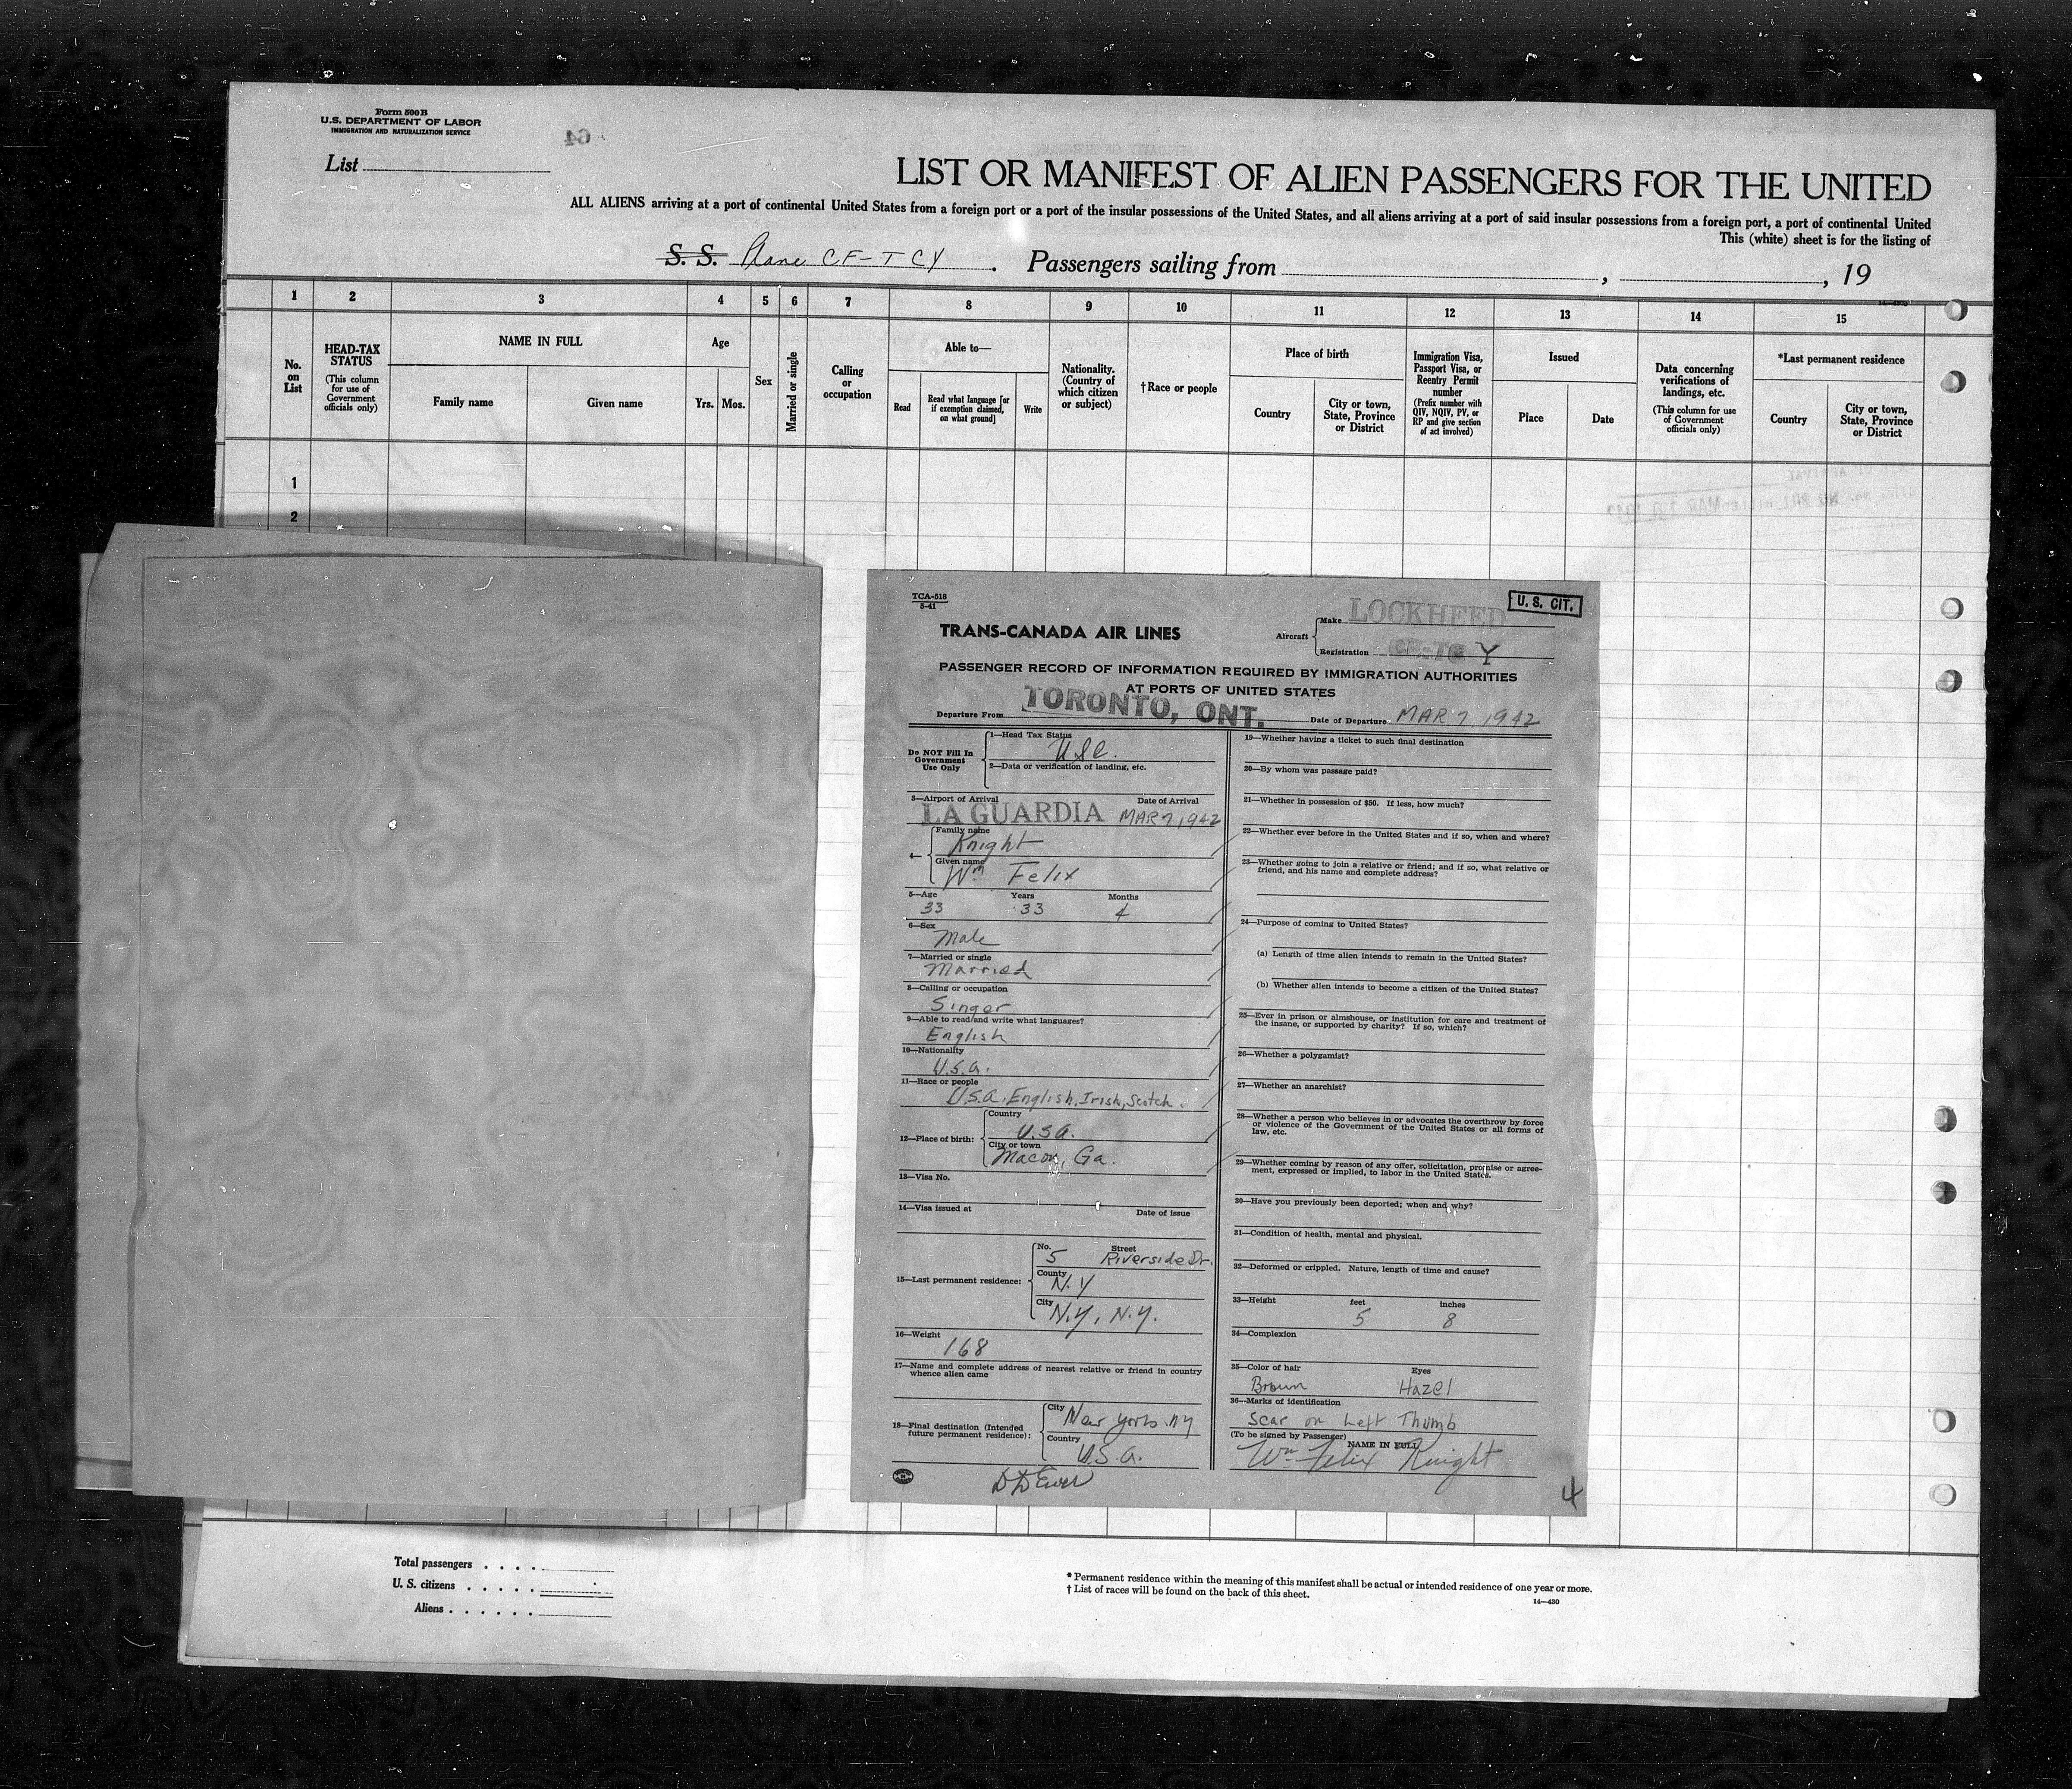 Form 500 B
U.S. DEPARTMENT OF LABOR
IMMIGRATION AND NATURALIZATION SERVICE
64
List
LIST OR MANIFEST OF ALIEN PASSENGERS FOR THE UNITED
ALL ALIENS arriving at a port of continental United States from a foreign port or a port of the insular possessions of the United States, and all aliens arriving at a port of said insular possessions from a foreign port, a port of continental United
This (white) sheet is for the listing of
S. S. Plane CF-TCY . Passengers sailing from , , 19
1 2 3 4 5 6 7 8 9 10 11 12 13 14 15
No. on List
HEAD-TAX STATUS (This column for use of Government officials only)
NAME IN FULL
Family name Given name
Age
Yrs. Mos.
Sex
Married or single
Calling or occupation
Able to—
Read Read what language [or if exemption claimed, on what ground] Write
Nationality. (Country of which citizen or subject)
†Race or people
Place of birth
Country City or town, State, Province or District
Immigration Visa, Passport Visa, or Reentry Permit number (Prefix number with QIV, NQIV, PV, or RP and give section of act involved)
Issued
Place Date
Data concerning verifications of landings, etc. (This column for use of Government officials only)
*Last permanent residence
Country City or town, State, Province or District
1
2
TCA-518
5-41
U. S. CIT.
TRANS-CANADA AIR LINES
Aircraft
Make LOCKHEED
Registration CF-TC Y
PASSENGER RECORD OF INFORMATION REQUIRED BY IMMIGRATION AUTHORITIES
AT PORTS OF UNITED STATES
Departure From TORONTO, ONT. Date of Departure MAR 7 1942
Do NOT Fill In
Government
Use Only
1—Head Tax Status
USC.
2—Data or verification of landing, etc.
3—Airport of Arrival Date of Arrival
LA GUARDIA MAR 7, 1942
4— Family name
Knight
Given name
Wm Felix
5—Age Years Months
33 33 4
6—Sex
Male
7—Married or single
Married
8—Calling or occupation
Singer
9—Able to read/and write what languages?
English
10—Nationality
U.S.a.
11—Race or people
U.S.a, English, Irish, Scotch.
12—Place of birth:
Country
U.Sa.
City or town
Macon, Ga.
13—Visa No.
14—Visa issued at Date of issue
15—Last permanent residence:
No. Street
5 Riverside Dr.
County
N.Y
City
N.Y, N.Y.
16—Weight
168
17—Name and complete address of nearest relative or friend in country
whence alien came
18—Final destination (Intended
future permanent residence):
City
New York NY
Country
U.S.a.
19—Whether having a ticket to such final destination
20—By whom was passage paid?
21—Whether in possession of $50. If less, how much?
22—Whether ever before in the United States and if so, when and where?
23—Whether going to join a relative or friend; and if so, what relative or
friend, and his name and complete address?
24—Purpose of coming to United States?
(a) Length of time alien intends to remain in the United States?
(b) Whether alien intends to become a citizen of the United States?
25—Ever in prison or almshouse, or institution for care and treatment of
the insane, or supported by charity? If so, which?
26—Whether a polygamist?
27—Whether an anarchist?
28—Whether a person who believes in or advocates the overthrow by force
or violence of the Government of the United States or all forms of
law, etc.
29—Whether coming by reason of any offer, solicitation, promise or agree-
ment, expressed or implied, to labor in the United States.
30—Have you previously been deported; when and why?
31—Condition of health, mental and physical.
32—Deformed or crippled. Nature, length of time and cause?
33—Height feet inches
5 8
34—Complexion
35—Color of hair Eyes
Brown Hazel
36—Marks of identification
Scar on Left Thumb
(To be signed by Passenger) NAME IN FULL
Wm Felix Knight
4
Total passengers . . . .
U. S. citizens . . . . .
Aliens . . . . . .
* Permanent residence within the meaning of this manifest shall be actual or intended residence of one year or more.
† List of races will be found on the back of this sheet.
14—430